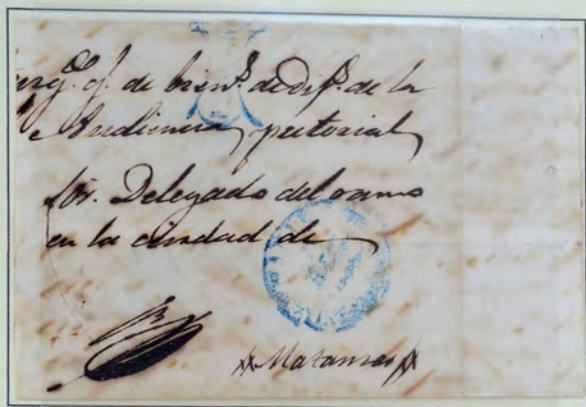 de bien.s de dif.s de la
Audiencia pretorial
Sor. Delegado del ramo
en la ciudad de
Matanzas